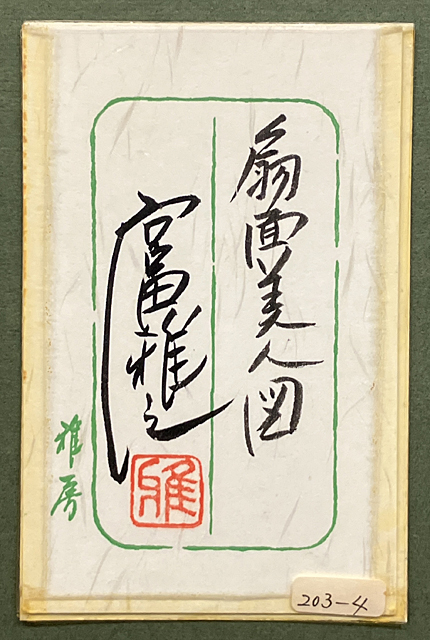 扇面美人図
宮田雅之
雅
雅房
203-4